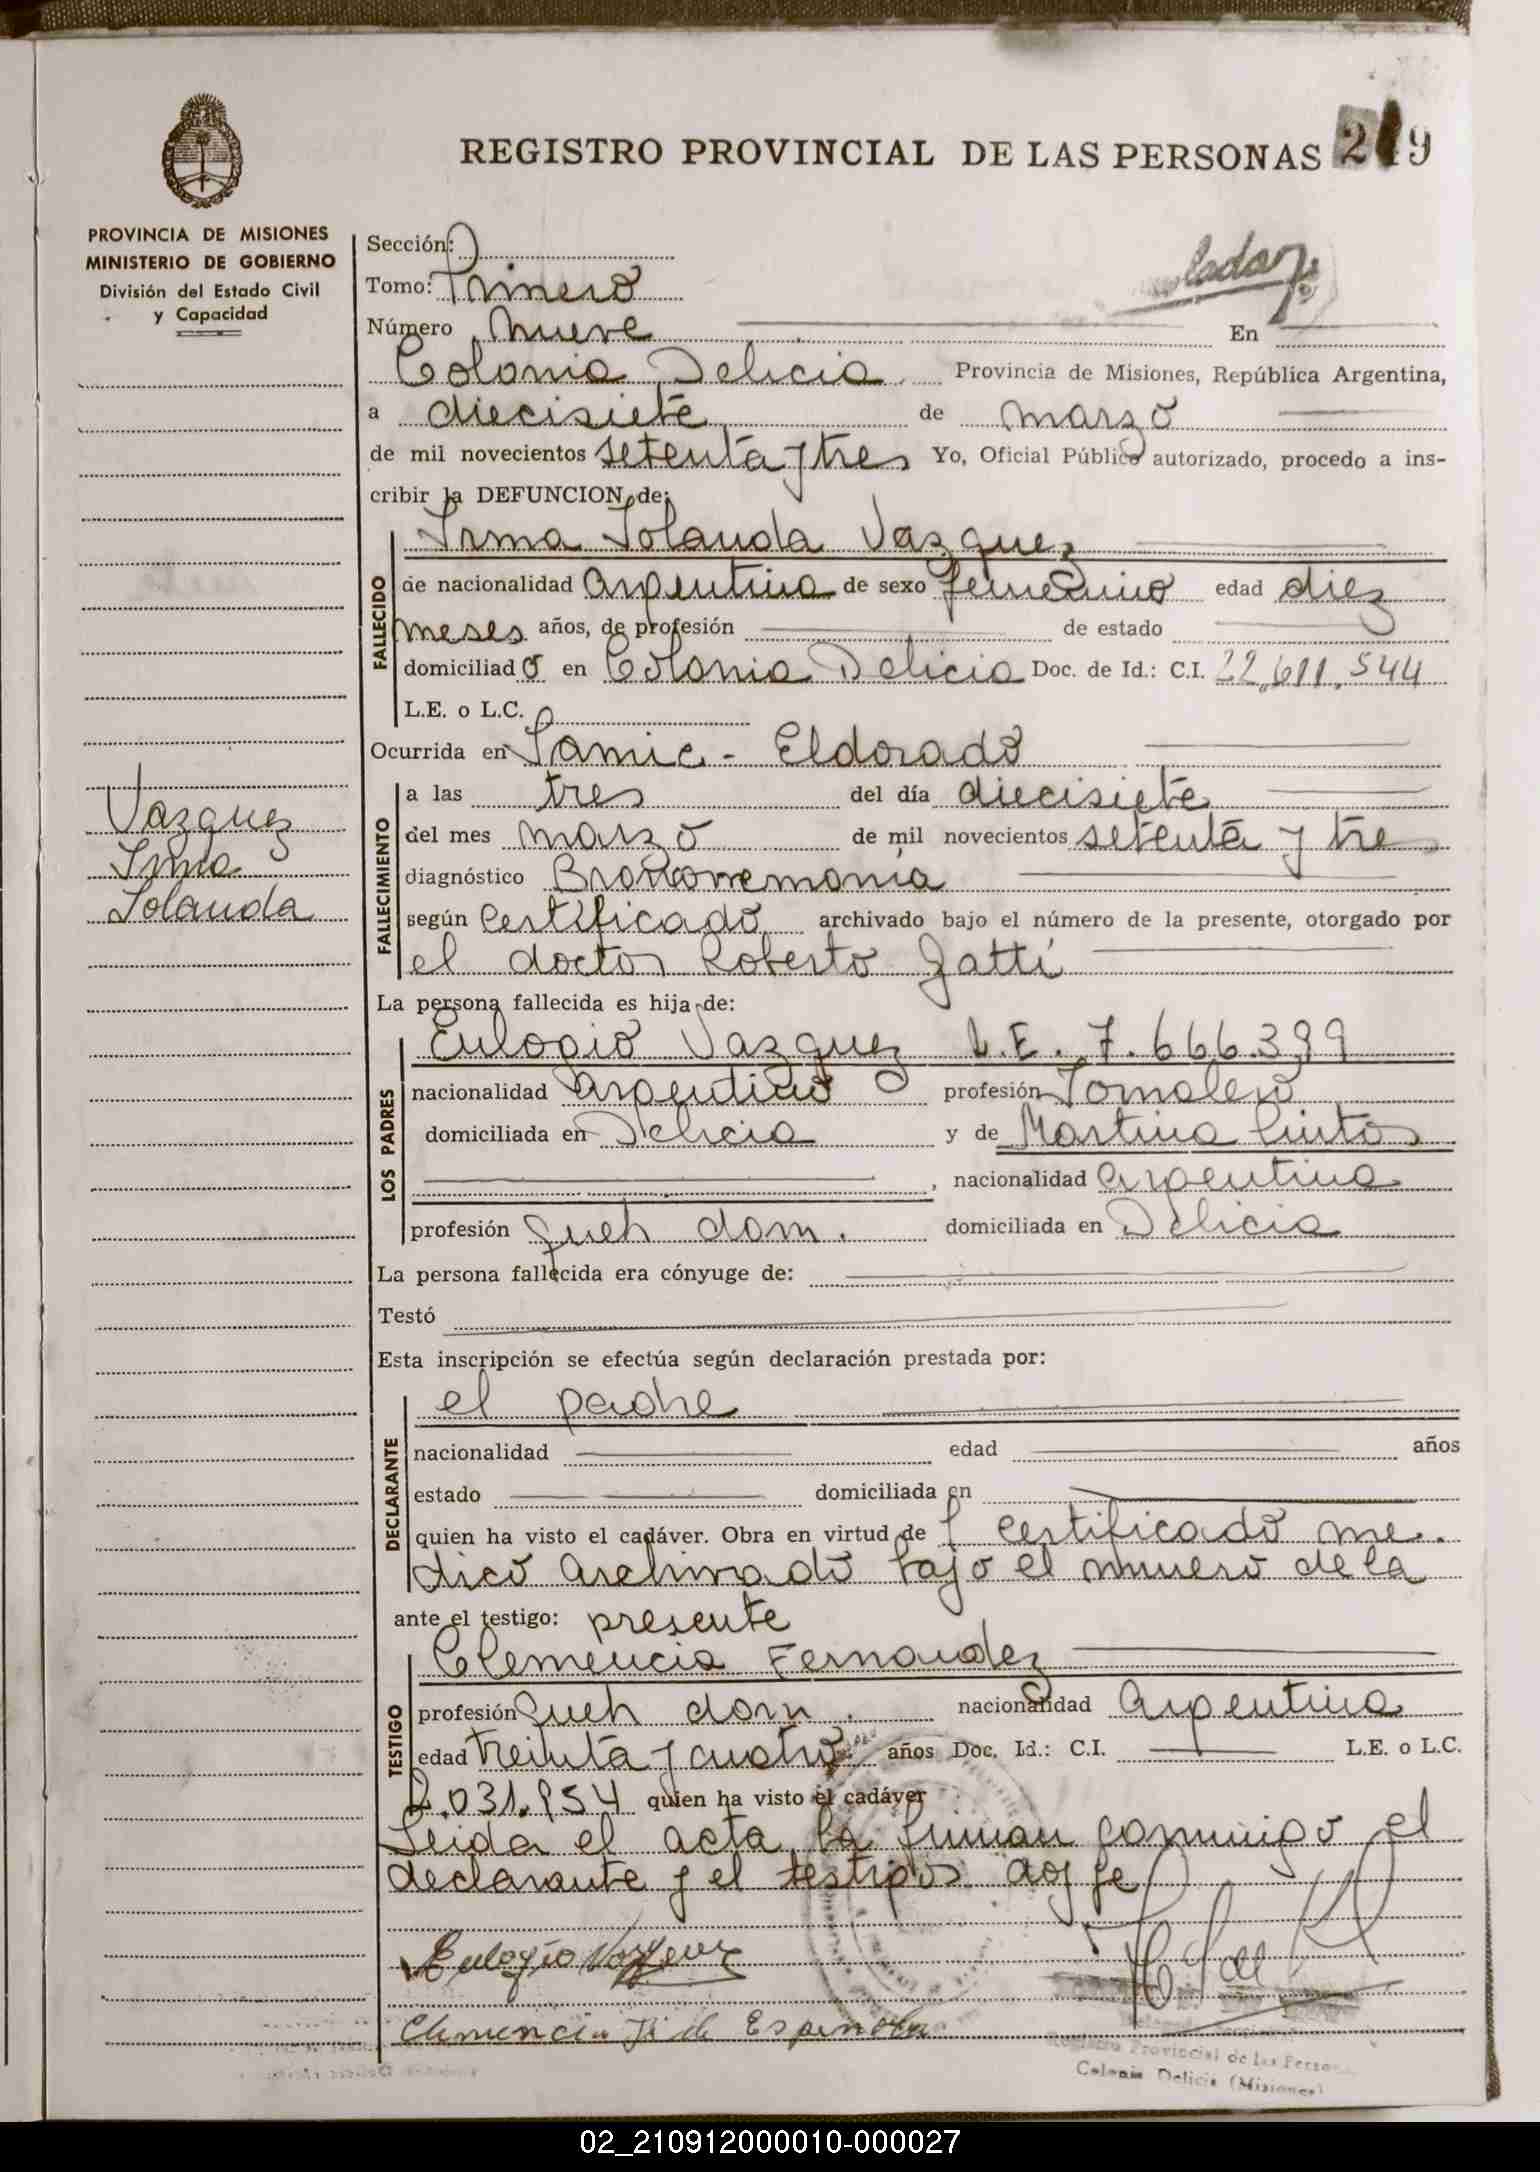 REGISTRO PROVINCIAL DE LAS PERSONAS 2 9
PROVINCIA DE MISIONES
MINISTERIO DE GOBIERNO
División del Estado Civil
y Capacidad
Sección:
Tomo: Primero
Número nueve En
Colonia Delicia Provincia de Misiones, República Argentina,
a diecisiete de marzo
de mil novecientos setenta y tres Yo, Oficial Público autorizado, procedo a ins-
cribir la DEFUNCION de:
Irma Iolanda Vazquez
FALLECIDO
de nacionalidad argentina de sexo femenino edad diez
meses años, de profesión de estado
domiciliado en Colonia Delicia Doc. de Id.: C.I. 22.611.544
L.E. o L.C.
Ocurrida en Samic - Eldorado
Vazquez
Irma
Iolanda
FALLECIMIENTO
a las tres del día diecisiete
del mes marzo de mil novecientos setenta y tres
diagnóstico
según certificado archivado bajo el número de la presente, otorgado por
el doctor Roberto Gatti
La persona fallecida es hija de:
LOS PADRES
Eulogio Vazquez L.E. 7.666.399
nacionalidad argentino profesión Jornalero
domiciliada en Delicia y de Martina
nacionalidad argentina
profesión queh dom. domiciliada en Delicia
La persona fallecida era cónyuge de:
Testó
Esta inscripción se efectúa según declaración prestada por:
DECLARANTE
el padre
nacionalidad edad años
estado domiciliada en
quien ha visto el cadáver. Obra en virtud de certificado me-
dico archivado bajo el numero de la
ante el testigo: presente
TESTIGO
Clemencia Fernandez
profesión queh dom. nacionalidad argentina
edad treinta y cuatro años Doc. Id.: C.I. L.E. o L.C.
2.031.954 quien ha visto el cadáver
Leida el acta la firman conmigo el
declarante y el testigos doy fe
Eulogio Vazquez
Clemencia F. de Espindola
Registro Provincial de las Personas
Colonia Delicia (Misiones)
02_210912000010-000027